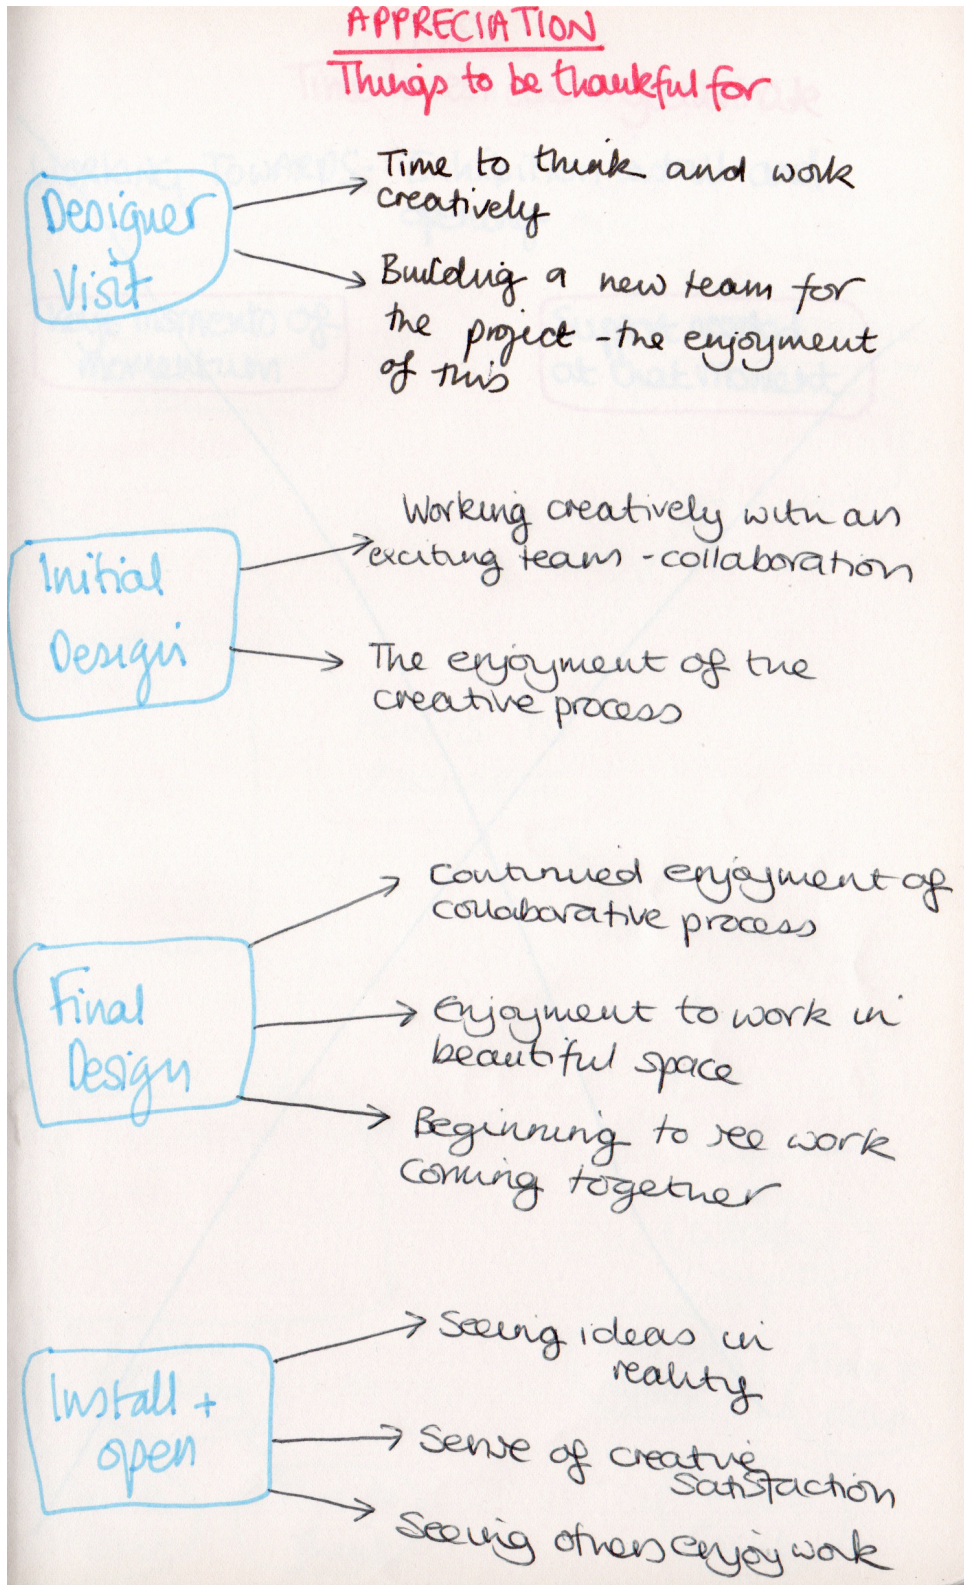 APPRECIATION
Things to be thankful for
Designer
Visit
Time to think and work
creatively
Building a new team for
the project - the enjoyment
of this
Initial
Design
Working creatively with an
exciting team - collaboration
The enjoyment of the
creative process
Final
Design
Continued enjoyment of
collaborative process
Enjoyment to work in
beautiful space
Beginning to see work
coming together
Install +
open
Seeing ideas in
reality
Sense of creative
satisfaction
Seeing others enjoy work